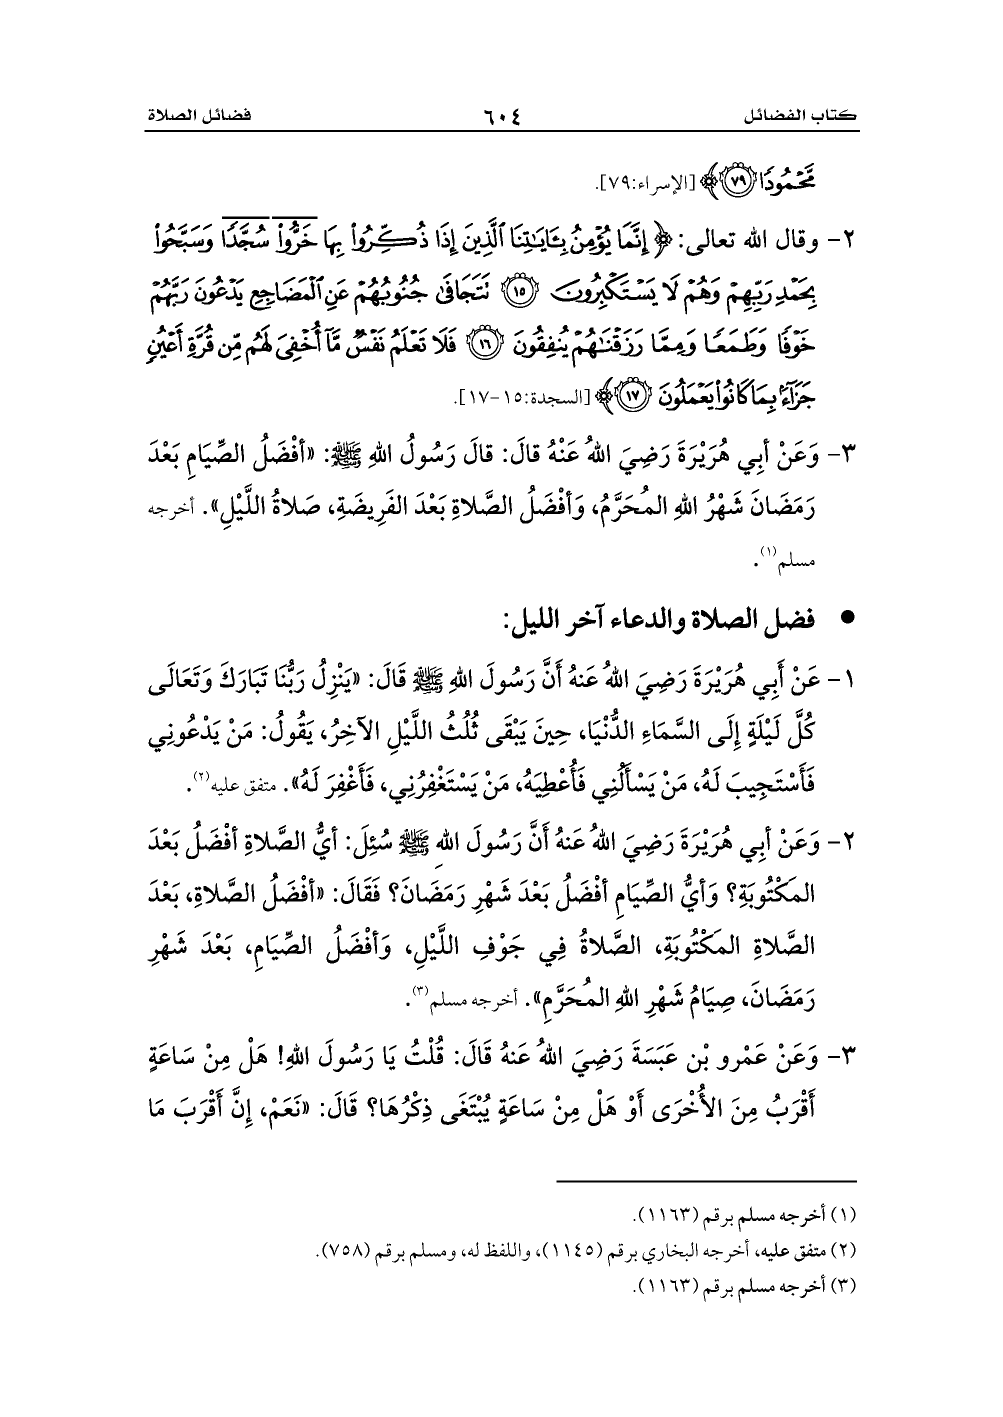 كتاب الفضائل ٦٠٤ فضائل الصلاة
مَّحْمُودًا ﴿٧٩﴾ [الإسراء:٧٩].
٢- وقال الله تعالى: ﴿ إِنَّمَا يُؤْمِنُ بِـَٔايَـٰتِنَا ٱلَّذِينَ إِذَا ذُكِّرُوا۟ بِهَا خَرُّوا۟ سُجَّدًا وَسَبَّحُوا۟
بِحَمْدِ رَبِّهِمْ وَهُمْ لَا يَسْتَكْبِرُونَ ﴿١٥﴾ تَتَجَافَىٰ جُنُوبُهُمْ عَنِ ٱلْمَضَاجِعِ يَدْعُونَ رَبَّهُمْ
خَوْفًا وَطَمَعًا وَمِمَّا رَزَقْنَـٰهُمْ يُنفِقُونَ ﴿١٦﴾ فَلَا تَعْلَمُ نَفْسٌ مَّآ أُخْفِىَ لَهُم مِّن قُرَّةِ أَعْيُنٍ
جَزَآءًۢ بِمَا كَانُوا۟ يَعْمَلُونَ ﴿١٧﴾ [السجدة:١٥-١٧].
٣- وَعَنْ أبِي هُرَيْرَةَ رَضِيَ اللهُ عَنْهُ قالَ: قالَ رَسُولُ اللهِ ﷺ: «أفْضَلُ الصِّيَامِ بَعْدَ
رَمَضَانَ شَهْرُ اللهِ المُحَرَّمُ، وَأفْضَلُ الصَّلاةِ بَعْدَ الفَرِيضَةِ، صَلاةُ اللَّيْلِ». أخرجه
مسلم(١).
● فضل الصلاة والدعاء آخر الليل:
١- عَنْ أَبِي هُرَيْرَةَ رَضِيَ اللهُ عَنهُ أَنَّ رَسُولَ اللهِ ﷺ قَالَ: «يَنْزِلُ رَبُّنَا تَبَارَكَ وَتَعَالَى
كُلَّ لَيْلَةٍ إِلَى السَّمَاءِ الدُّنْيَا، حِينَ يَبْقَى ثُلُثُ اللَّيْلِ الآخِرُ، يَقُولُ: مَنْ يَدْعُونِي
فَأَسْتَجِيبَ لَهُ، مَنْ يَسْأَلُنِي فَأُعْطِيَهُ، مَنْ يَسْتَغْفِرُنِي، فَأَغْفِرَ لَهُ». متفق عليه(٢).
٢- وَعَنْ أبِي هُرَيْرَةَ رَضِيَ اللهُ عَنهُ أنَّ رَسُولَ اللهِ ﷺ سُئِلَ: أيُّ الصَّلاةِ أفْضَلُ بَعْدَ
المَكْتُوبَةِ؟ وَأيُّ الصِّيَامِ أفْضَلُ بَعْدَ شَهْرِ رَمَضَانَ؟ فَقَالَ: «أفْضَلُ الصَّلاةِ، بَعْدَ
الصَّلاةِ المَكْتُوبَةِ، الصَّلاةُ فِي جَوْفِ اللَّيْلِ، وَأفْضَلُ الصِّيَامِ، بَعْدَ شَهْرِ
رَمَضَانَ، صِيَامُ شَهْرِ اللهِ المُحَرَّمِ». أخرجه مسلم(٣).
٣- وَعَنْ عَمْرِو بْنِ عَبَسَةَ رَضِيَ اللهُ عَنهُ قَالَ: قُلْتُ يَا رَسُولَ اللهِ! هَلْ مِنْ سَاعَةٍ
أَقْرَبُ مِنَ الأُخْرَى أَوْ هَلْ مِنْ سَاعَةٍ يُبْتَغَى ذِكْرُهَا؟ قَالَ: «نَعَمْ، إِنَّ أَقْرَبَ مَا
(١) أخرجه مسلم برقم (١١٦٣).
(٢) متفق عليه، أخرجه البخاري برقم (١١٤٥)، واللفظ له، ومسلم برقم (٧٥٨).
(٣) أخرجه مسلم برقم (١١٦٣).